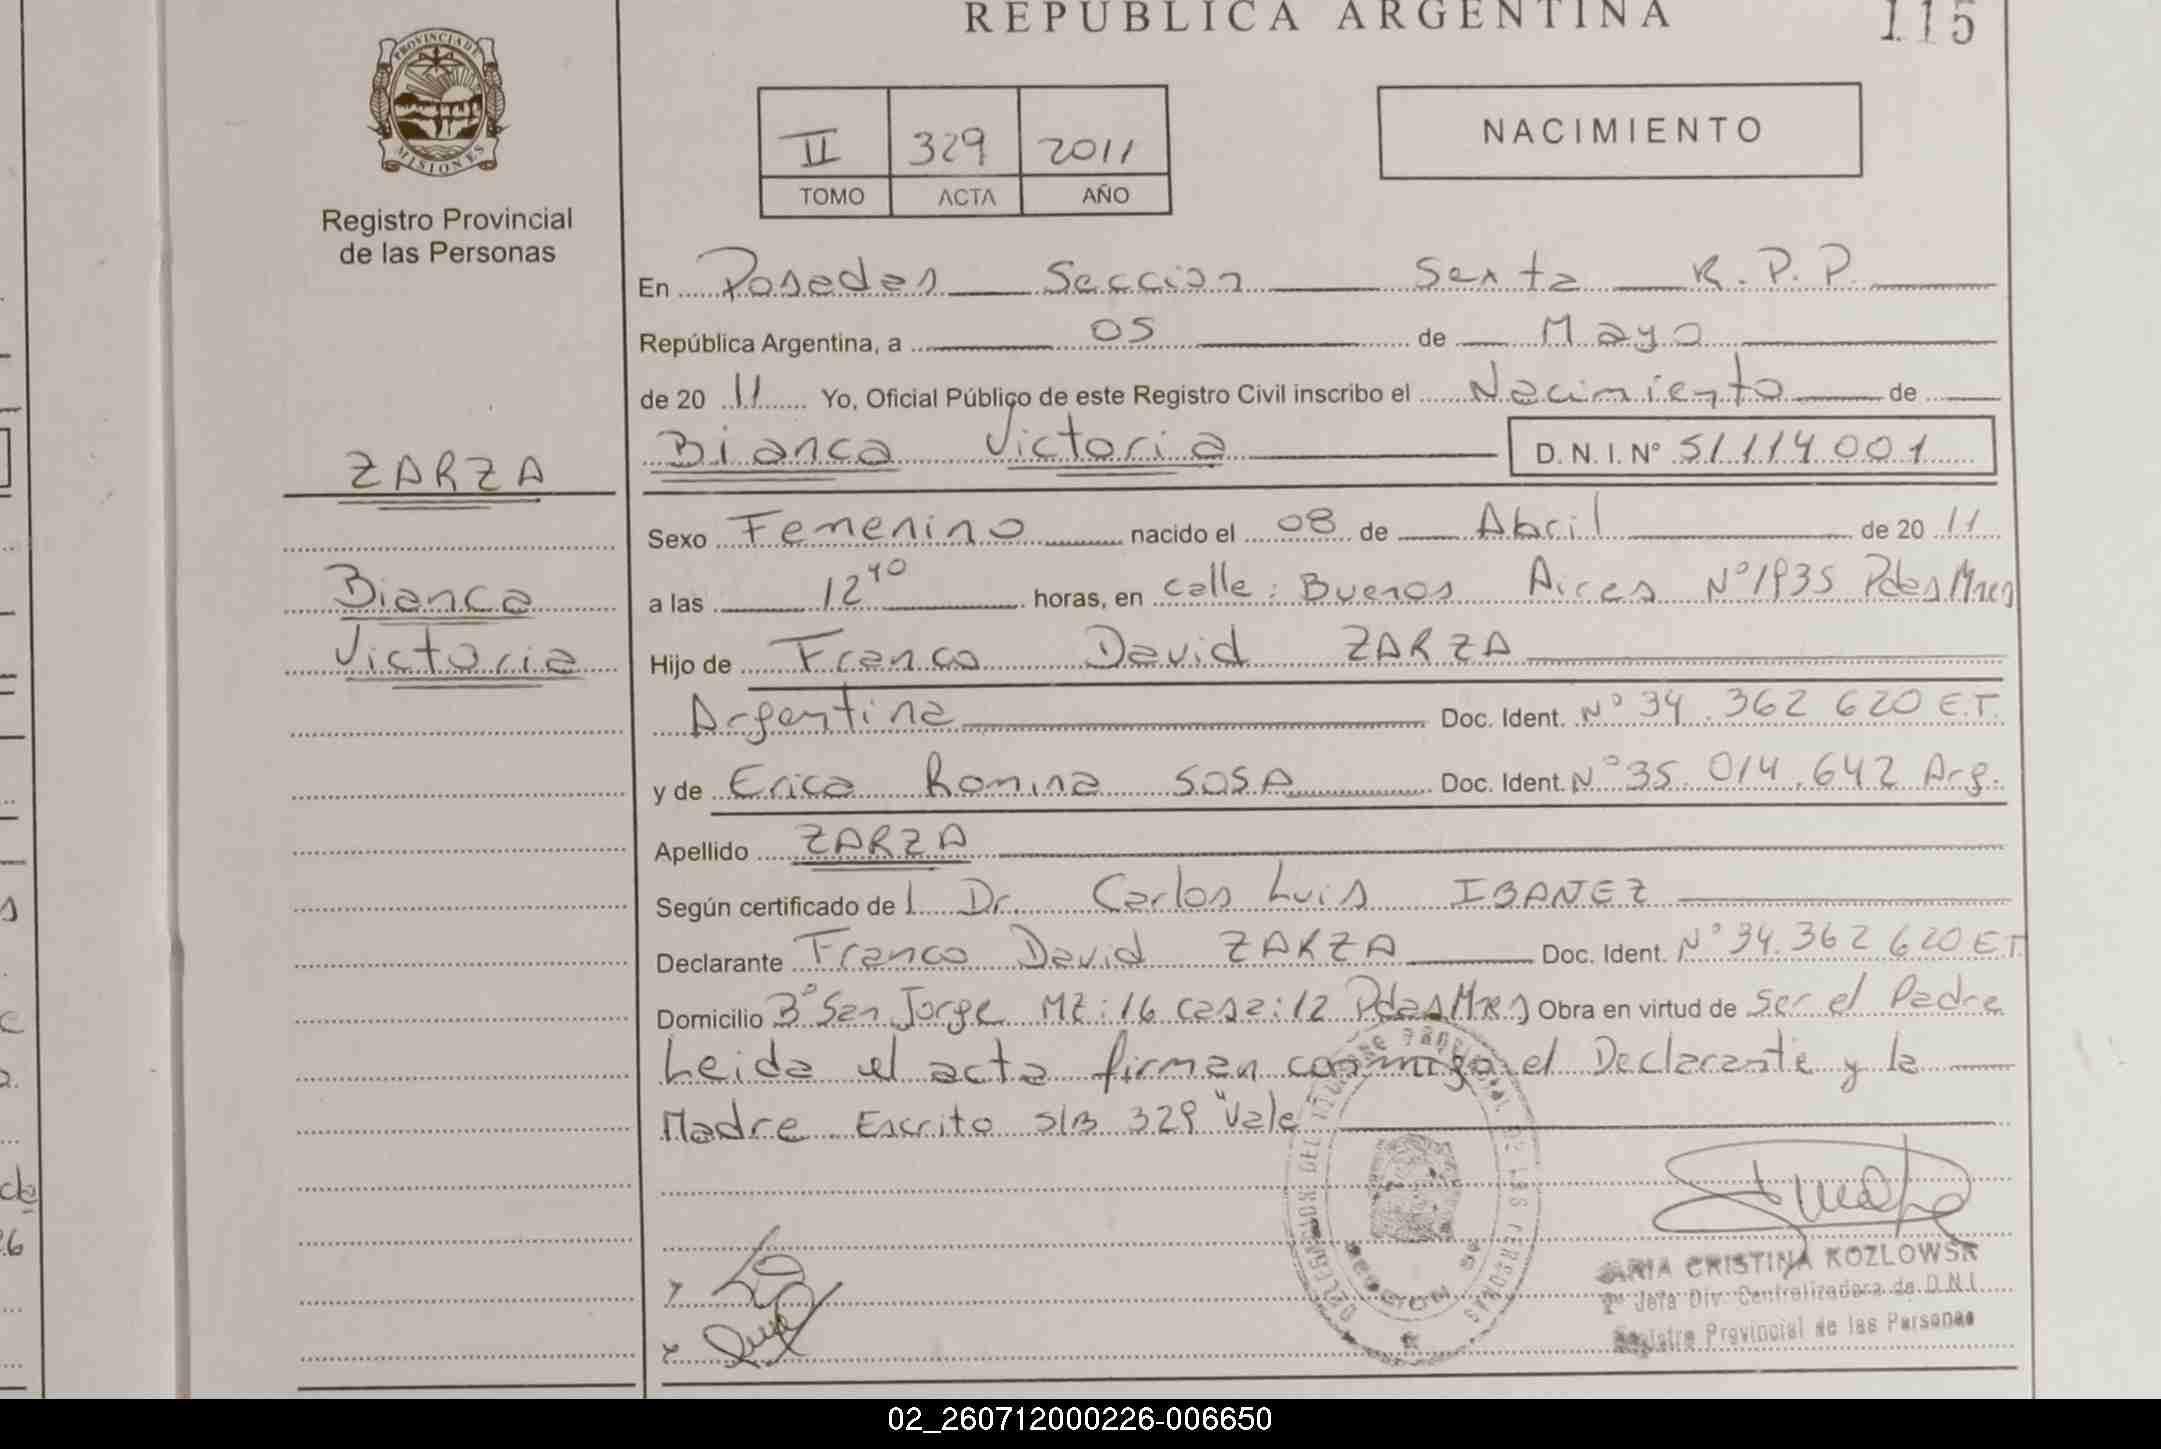 REPUBLICA ARGENTINA
115
PROVINCIA DE
MISIONES
Registro Provincial
de las Personas
II 329 2011
TOMO ACTA AÑO
NACIMIENTO
En Posadas Seccion Sexta R.P.P.
República Argentina, a 05 de Mayo
de 20 11 Yo, Oficial Público de este Registro Civil inscribo el Nacimiento de
Bianca Victoria D.N.I. Nº 51.114.001
ZARZA
Bianca
Victoria
Sexo Femenino nacido el 08 de Abril de 20 11
a las 12 40 horas, en calle: Buenos Aires Nº 1935 Pdas Mnes
Hijo de Franco David ZARZA
Argentina Doc. Ident. Nº 34.362 620 E.T.
y de Erica Romina SOSA Doc. Ident. Nº 35.014.642 Arg.
Apellido ZARZA
Según certificado de l Dr. Carlos Luis IBANEZ
Declarante Franco David ZARZA Doc. Ident. Nº 34.362 620 E.T
Domicilio Bº San Jorge Mz: 16 casa: 12 Pdas Mnes Obra en virtud de Ser el Padre
Leida el acta firman conmigo el Declarante y la
Madre Escrito S/B 329 "Vale
ARIA CRISTINA KOZLOWSK
2º Jefa Div. Centralizadora de D.N.I.
Registro Provincial de las Personas
02_260712000226-006650